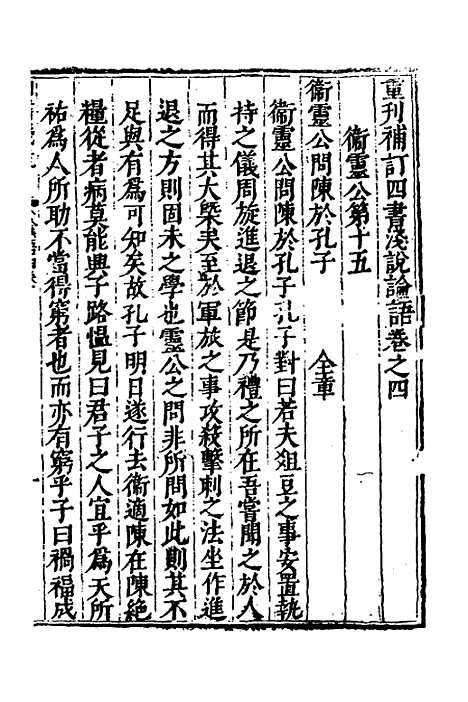 重刊補訂四書淺說論語卷之四
衞靈公第十五
衞靈公問陳於孔子　全章
衞靈公問陳於孔子孔子對曰若夫俎豆之事安置執
持之儀周旋進退之節是乃禮之所在吾嘗聞之於人
而得其大槩矣至於軍旅之事攻殺擊刺之法坐作進
退之方則固未之學也靈公之問非所問如此則其不
足與有爲可知矣故孔子明日遂行去衞適陳在陳絕
糧從者病莫能興子路慍見曰君子之人宜乎爲天所
祐爲人所助不當得窮者也而亦有窮乎子曰禍福成